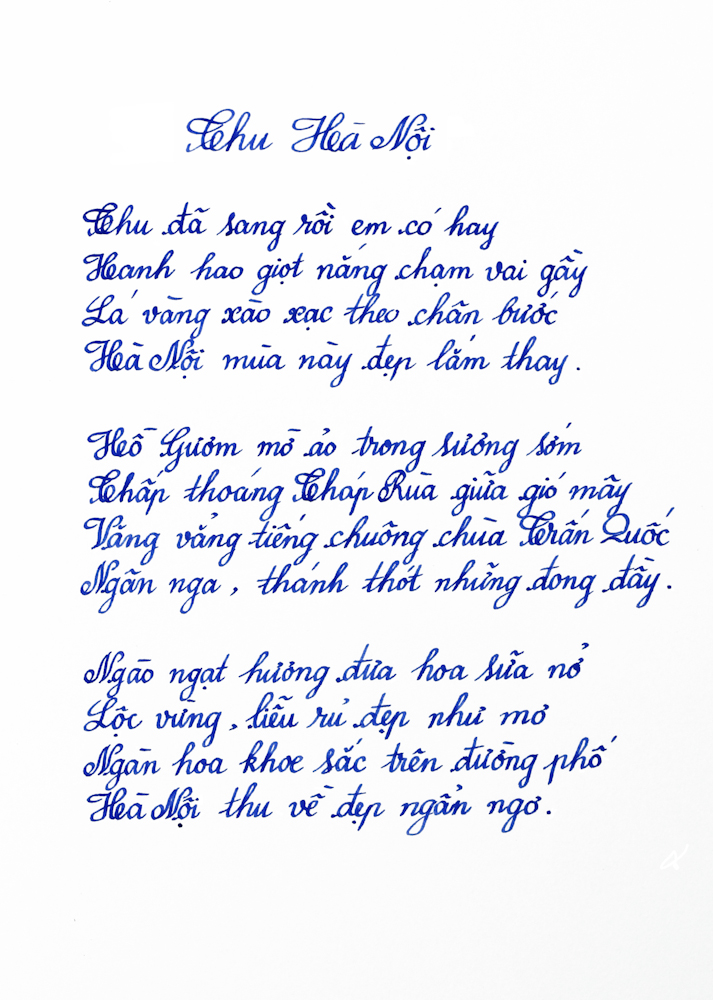 Thu Hà Nội
Thu đã sang rồi em có hay
Hanh hao giọt nắng chạm vai gầy
Lá vàng xào xạc theo chân bước
Hà Nội mùa này đẹp lắm thay.
Hồ Gươm mờ ảo trong sương sớm
Thấp thoáng Tháp Rùa giữa gió mây
Văng vẳng tiếng chuông chùa Trấn Quốc
Ngân nga, thánh thót những đong đầy.
Ngào ngạt hương đưa hoa sữa nở
Lộc vừng, liễu rủ đẹp như mơ
Ngàn hoa khoe sắc trên đường phố
Hà Nội thu về đẹp ngẩn ngơ.